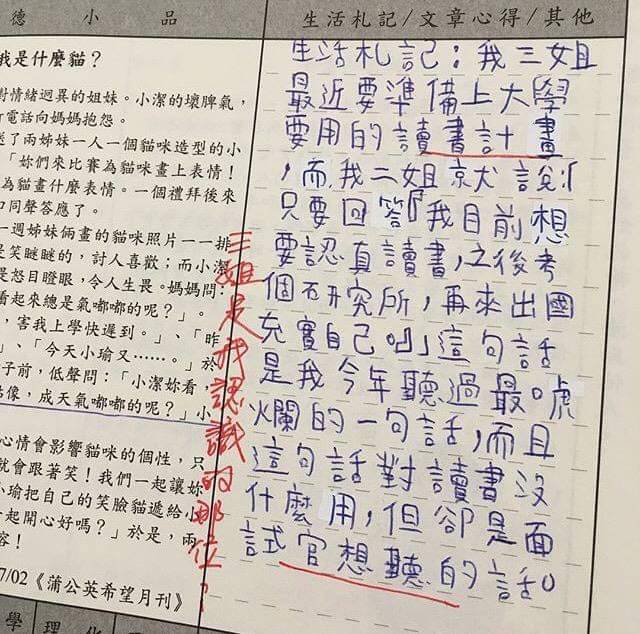 德小品
生活札記/文章心得/其他
我是什麼貓？
對情緒迥異的姐妹。小潔的壞脾氣，
打電話向媽媽抱怨。
送了兩姊妹一人一個貓咪造型的小
「妳們來比賽為貓咪畫上表情！
為貓畫什麼表情。一個禮拜後來
口同聲答應了。
一週姊妹倆畫的貓咪照片一一排
是笑瞇瞇的，討人喜歡；而小潔
是怒目瞪眼，令人生畏。媽媽問：
看起來總是氣嘟嘟的呢？」。
，害我上學快遲到。」、「昨
」、「今天小瑜又……。」於
子前，低聲問：「小潔妳看，
點像，成天氣嘟嘟的呢？」小
心情會影響貓咪的個性，只
就會跟著笑！我們一起讓妳
小瑜把自己的笑臉貓遞給小
一起開心好嗎？」於是，兩
容！
7/02《蒲公英希望月刊》
學理化
三姐是我認識的那位？
生活札記：我三姐
最近要準備上大學
要用的讀書計畫
，而我二姐就說
只要回答「我目前想
要認真讀書，之後考
個研究所，再來出國
充實自己吧」這句話
是我今年聽過最唬
爛的一句話，而且
這句話對讀書沒
什麼用，但卻是面
試官想聽的話。